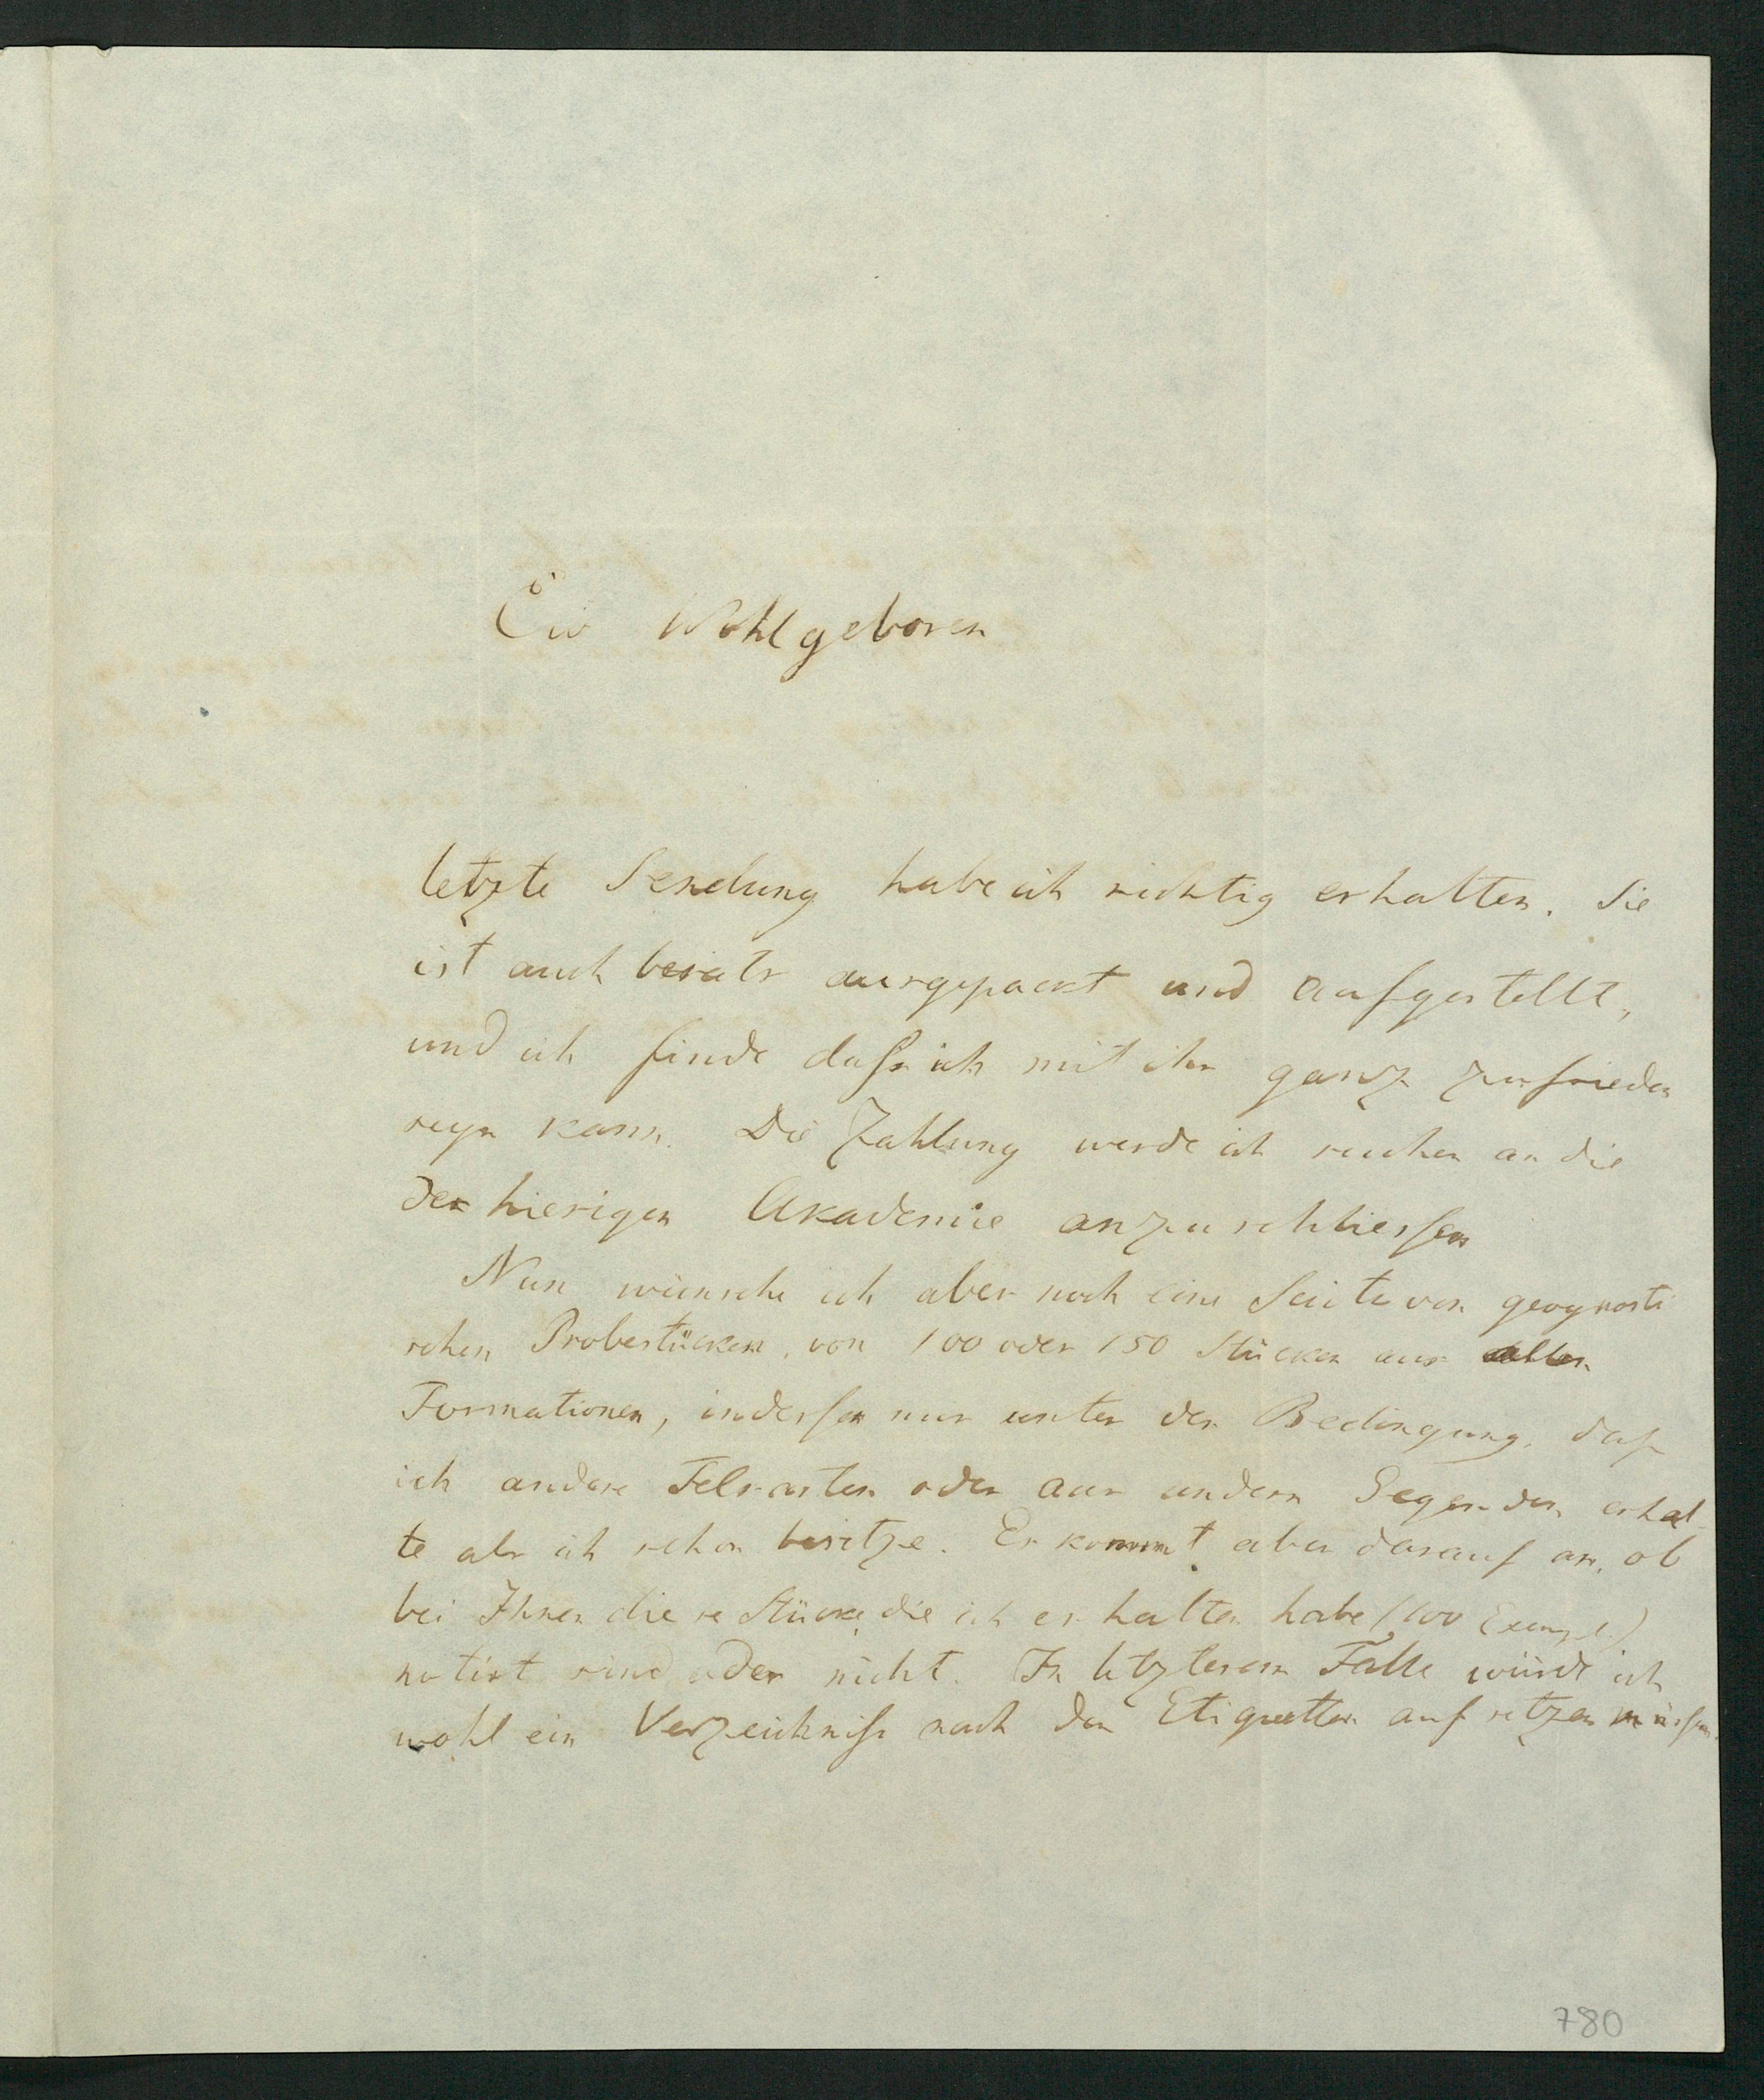 Ew Wohlgeboren
letzte Sendung habe ich richtig erhalten. Sie
ist auch bereits ausgepackt und aufgestellt,
und ich finde daß ich mit ihr ganz zufrieden
seyn kann. Die Zahlung werde ich suchen an die
der hiesigen Akademie anzuschliessen
Nun wünsche ich aber noch eine Suite von geognosti
schen Probestücken, von 100 oder 150 Stücken aus allen
Formationen, indessen nur unter der Bedingung, daß
ich andere Felsarten oder aus andern Gegenden erhal-
te als ich schon besitze. Es kommt aber darauf an, ob
bei Ihnen diese Stücke, die ich erhalten habe (100 Exempl.)
notirt sind oder nicht. In letzterem Falle würde ich
wohl ein Verzeichniß nach den Etiquetten aufsetzen müssen.
780